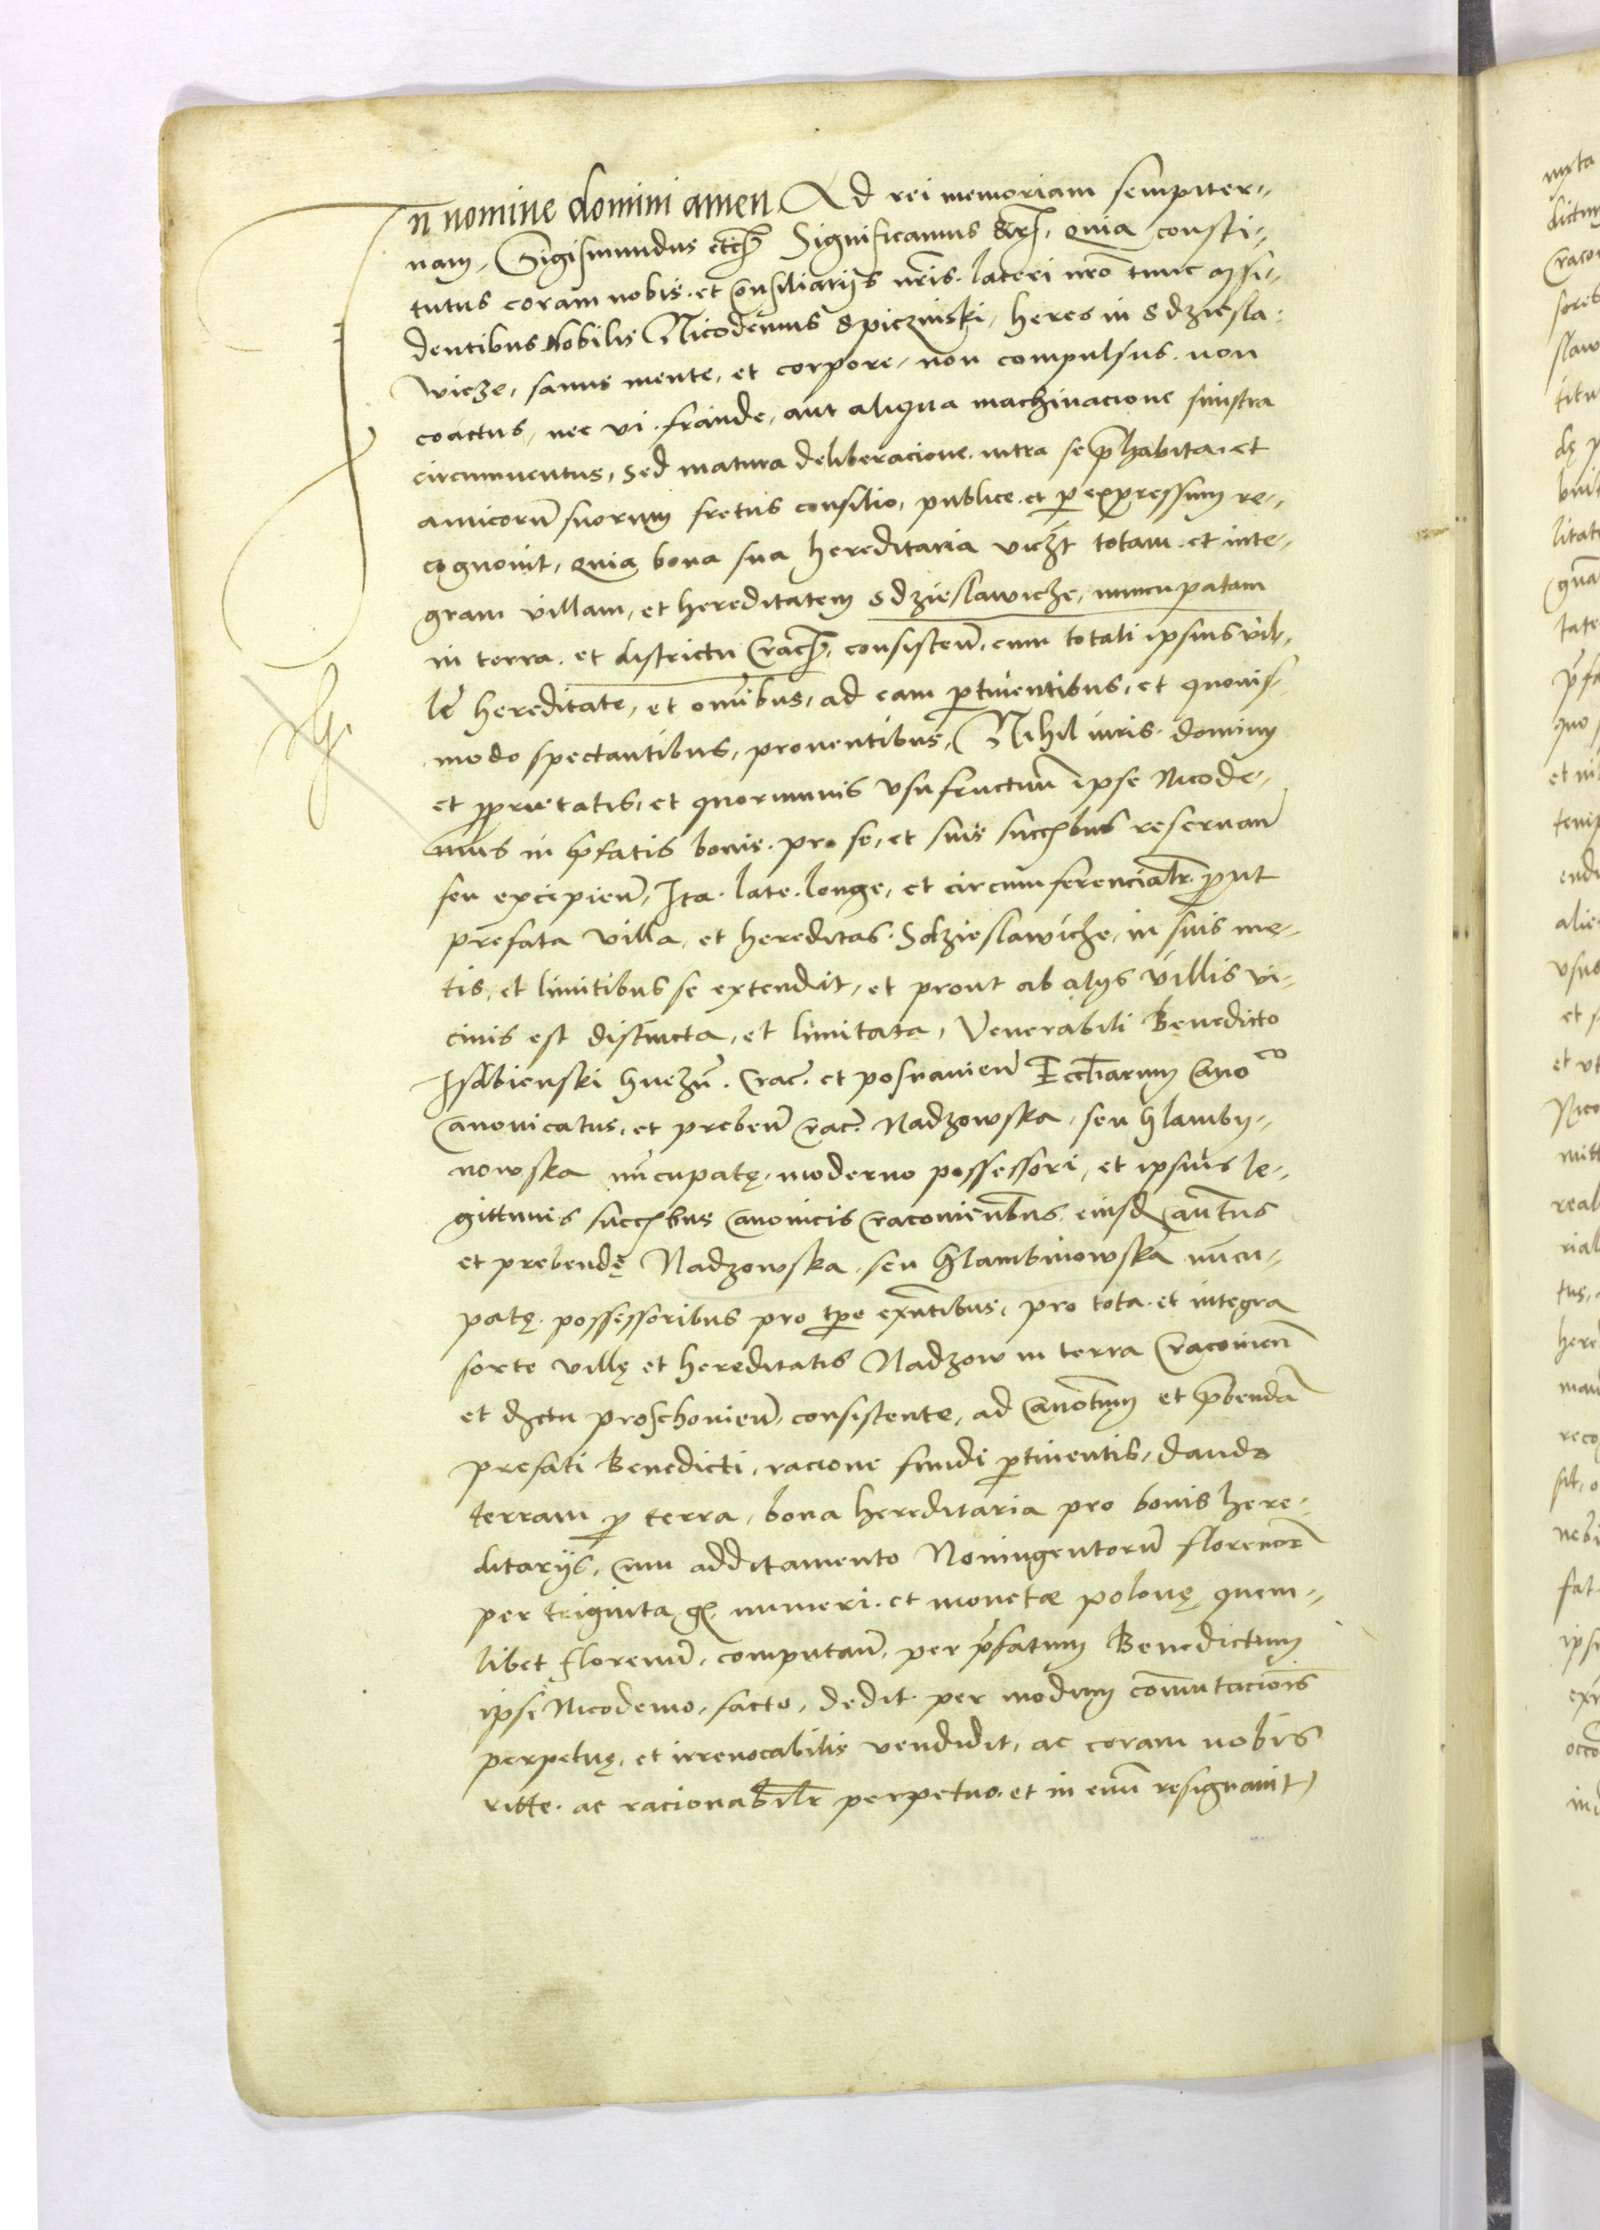 In nomine domini amen. Ad rei memoriam sempiter-
nam, Sigismundus etc̃ Significamus &c̃, quia consti-
tutus coram nobis et Consiliarijs nr̃is lateri nr̃o tunc assi-
dentibus Nobilis Nicodemus Spiczinski, heres in Sdziesla-
wicze, sanus mente, et corpore, non compulsus non
coactus, nec vi fraude, aut aliqua machinacione sinistra
circumventus, Sed matura deliberacione intra se p̃habita et
amicorũ suorum fretus consilio, publice et p expressum re-
cognovit, quia bona sua hereditaria vicz̃t totam et inte-
gram villam, et hereditatem Sdzieslawicze, nuncupatam
in terra et districtu Crac̃ consisteñ, cum totali ipsius vil-
lę hereditate, et om̃ibus, ad eam ptinentibus, et quovis-
modo spectantibus, proventibus, Nihil iuris dominij
et pprietatis, et quorumvis usufructuũ ipse Nicode-
mus in p̃fatis bonis pro se, et suis succ̃bus reservan̄
seu excipien̄, Ita late longe, et circumferencialr̃ put
prefata villa, et hereditas Sdzieslawicze, in suis me-
tis, et limitibus se extendit, et prout ab alijs villis vi-
cinis est distincta, et limitata, Venerabili Benedicto
Isdbienski Gnezn̄. Crac̃. et posnanien̄ Eccl̃iarum Cano^co
Canonicatus, et preben̄ Crac̃. Nadzowska, seu Glambij-
nowska nũcupatę, moderno possessori, et ipsius le-
gittimis succ̃bus Canonicis Cracovien̄bus eiusd̃ Can̄tus
et prebendę Nadzowska seu Glambinowska nũcu-
patę possessoribus pro tp̃e exñtibus, pro tota et integra
sorte villę et hereditatis Nadzow in terra Cracovien̄
et d̃ctu proschovien̄, consistente, ad Canõtum et p̃bendã
prefati Benedicti, racione fundi ptinentis, dando
terram p terra, bona hereditaria pro bonis here-
ditarijs, Cum additamento Noningentorũ florenor̃
per triginta gr̃ numeri et monetæ polonę quem-
libet florenũ, computan̄, per p̃fatum Benedictum
ipsi Nicodemo, facto, dedit per modum com̃utacionis
perpetuę, et irrevocabilis vendidit, ac coram nobis
ritte ac racionabilr̃ perpetuo et in evũ resignavit